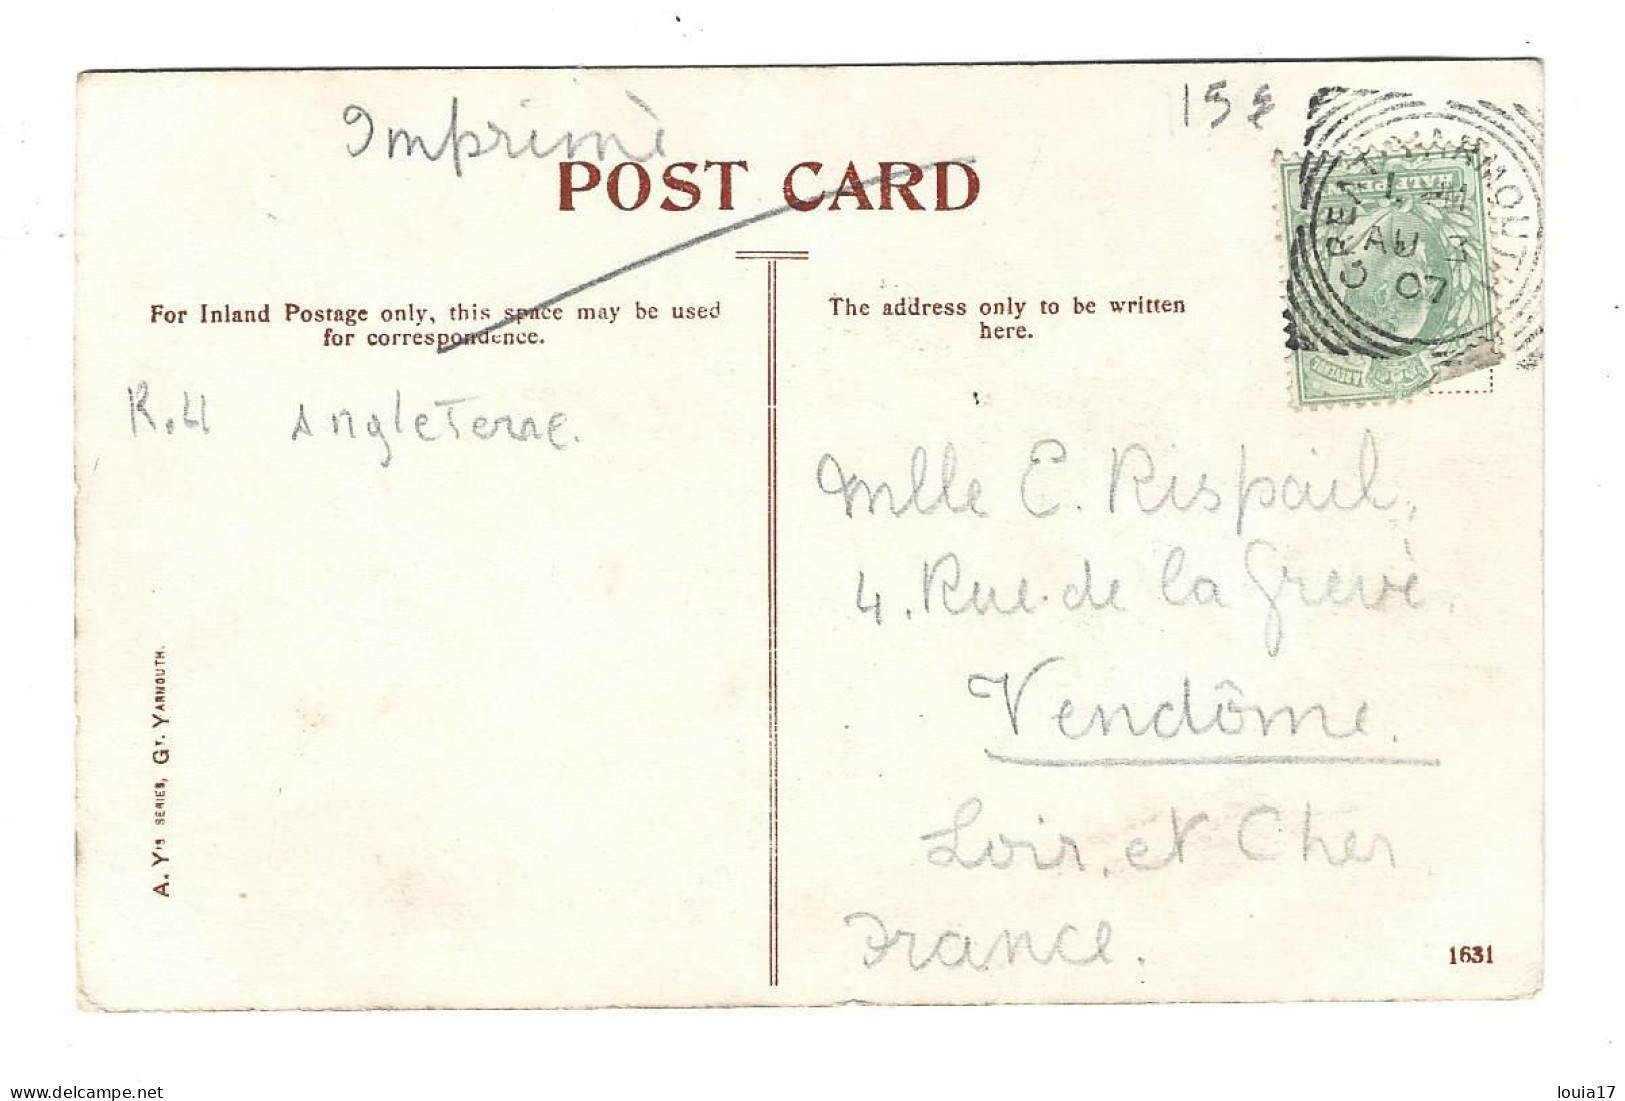 Imprimè
15 £
POST CARD
For Inland Postage only, this space may be used
for correspondence.
The address only to be written
here.
GREAT YARMOUTH
AU 3
07
HALFPENNY
R.H Angleterre.
Mlle E. Rispail,
4. Rue de la Grevè.
Vendôme.
Loir. et Cher
France.
A. Y's SERIES, GT. YARMOUTH.
1631
https://www.delcampe.net
louia17